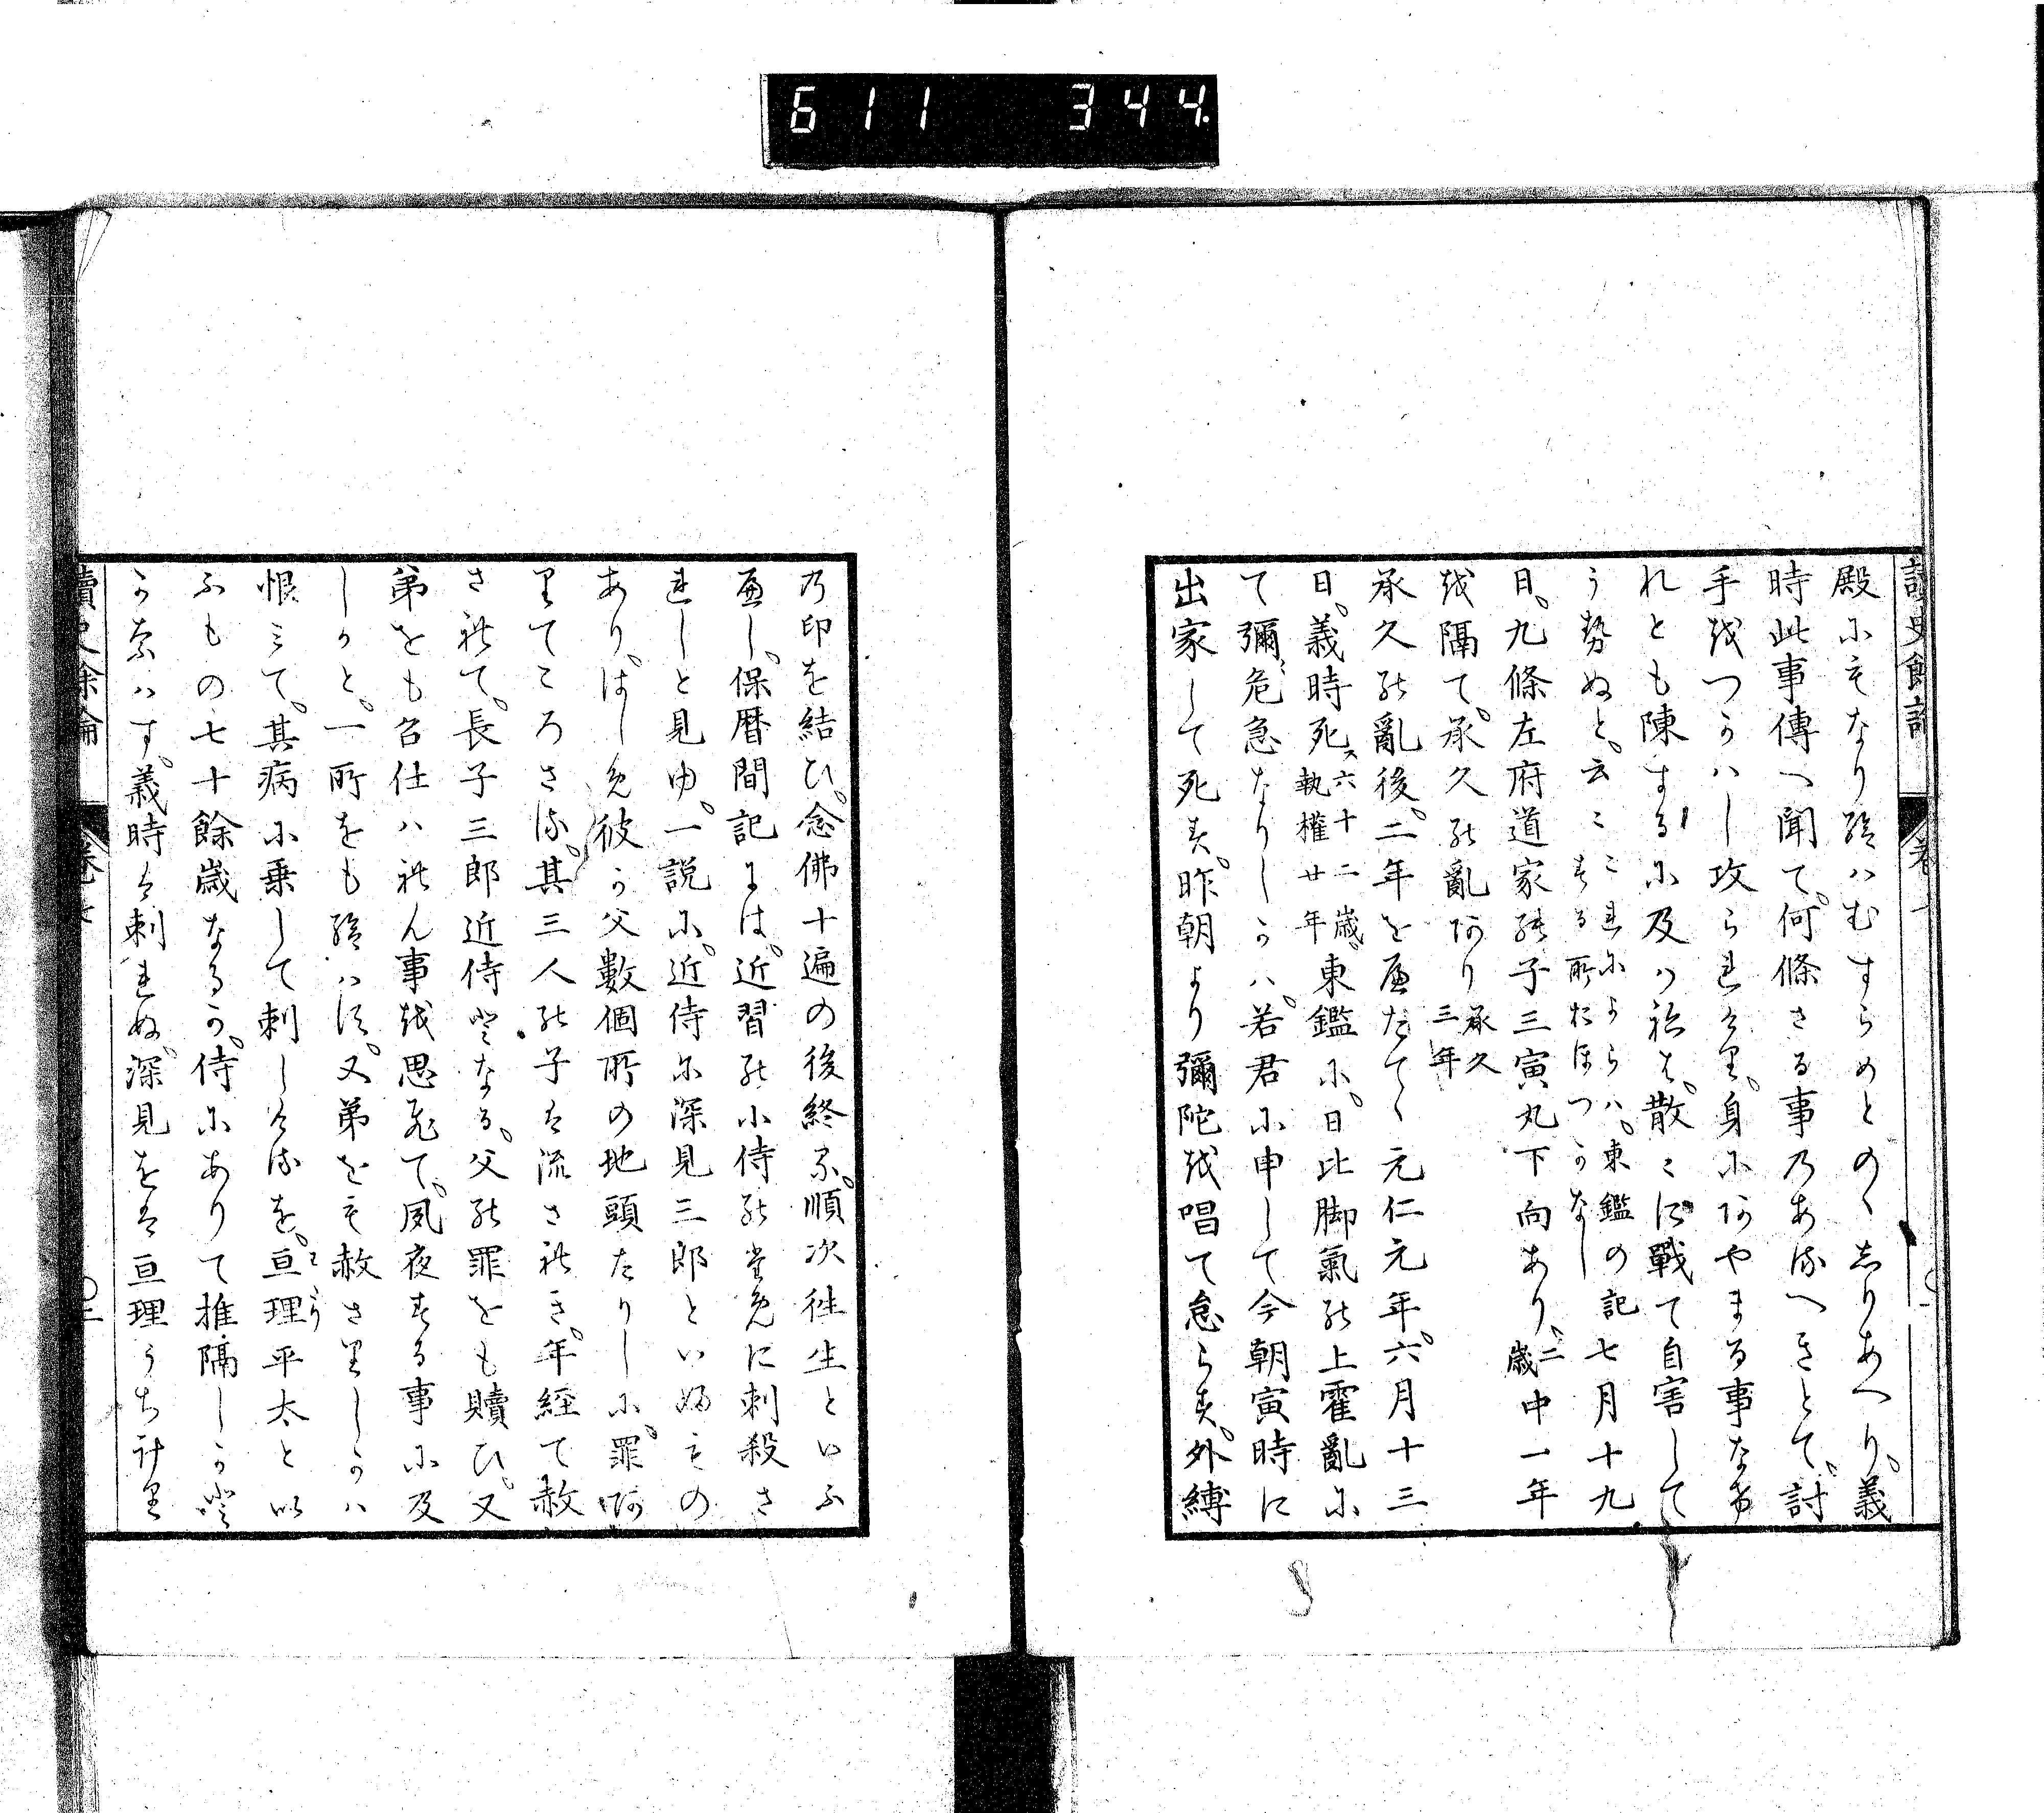 611 344.
讀史餘論
卷
殿にもなり給はむすらめとのゝしりあへり。義
時此事傳へ聞て。何條さる事のあるへきとて。討
手をつかはし攻られけり。身にあやまる事なけ
れとも陳するに及はねは。散々に戰て自害して
うせぬと。云々
これによらは。東鑑の記
する所おほつかなし
七月十九
日。九條左府道家の子三寅丸下向あり。二歳中一年
を隔て。承久の亂あり承久三年
承久の亂後。二年をへたてゝ元仁元年。六月十三
日。義時死ス六十二歳。執權廿年東鑑に。日比脚氣の上霍亂に
て彌危急なりしかは。若君に申して今朝寅時に
出家して死す。昨朝より彌陀を唱て怠らす。外縛
の印を結ひ。念佛十遍の後終る。順次往生といふ
へし。保暦間記には。近習の小侍のために刺殺さ
れしと見ゆ。一説に。近侍に深見三郎といふもの
あり。はしめ彼か父數個所の地頭たりしに。罪あ
りてころさる。其三人の子は流されき。年経て赦
されて。長子三郎近侍となる。父の罪をも贖ひ。又
弟をも召仕はれん事を思ひて。夙夜する事に及
しかと。一所をも給はす。又弟をも赦さりしかは
恨みて。其病に乗して刺しけるを。亘理平太とい
わたり
ふもの七十餘歳なるか。侍にありて推隔しかと
かなはす。義時は刺れぬ。深見をは亘理うち計り
讀史餘論
卷